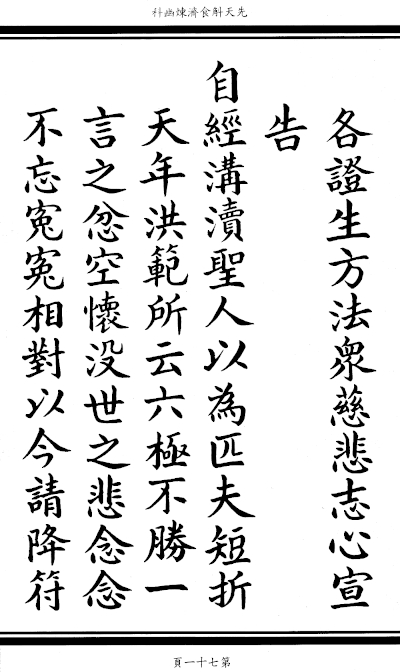 科幽煉濟食斛天先
各證生方法衆慈悲志心宣
告
自經溝瀆聖人以為匹夫短折
天年洪範所云六極不勝一
言之忿空懷没世之悲念念
不忘寃寃相對以今請降符
頁一十七第